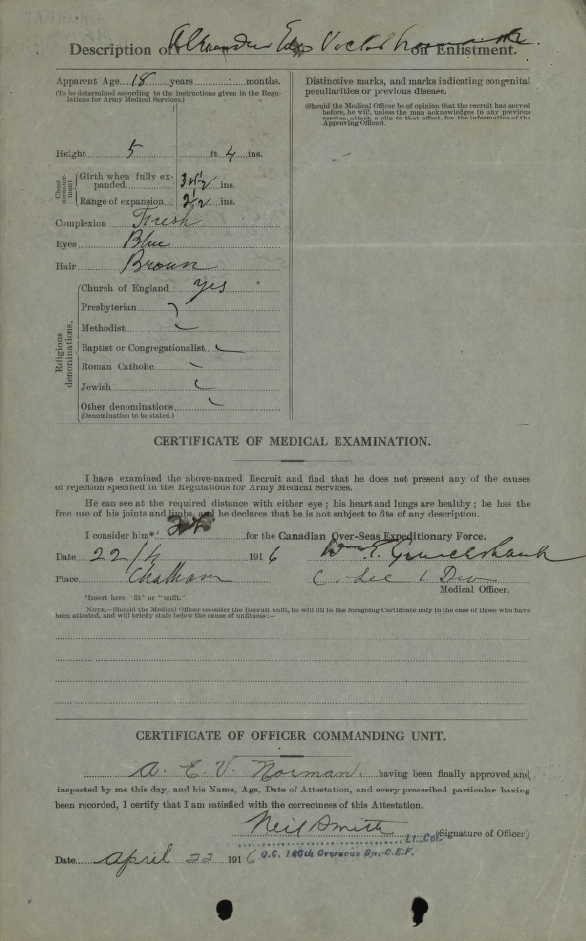 Description of Alexander on Enlistment.
Apparent Age 18 years months.
(To be determined according to the instructions given in the Regulations for Army Medical Services.)
Height 5 ft 4 ins.
Chest measurement
Girth when fully expanded 34½ ins.
Range of expansion 2½ ins.
Complexion Fresh
Eyes Blue
Hair Brown
Religious denominations.
Church of England yes
Presbyterian
Methodist
Baptist or Congregationalist
Roman Catholic
Jewish
Other denominations
(Denomination to be stated.)
Distinctive marks, and marks indicating congenital
peculiarities or previous disease.
(Should the Medical Officer be of opinion that the recruit has served
before, he will, unless the man acknowledges to any previous
service, attach a slip to that effect, for the information of the
Approving Officer).
CERTIFICATE OF MEDICAL EXAMINATION.
I have examined the above-named Recruit and find that he does not present any of the causes
of rejection specified in the Regulations for Army Medical Services.
He can see at the required distance with either eye ; his heart and lungs are healthy ; he has the
free use of his joints and limbs, and he declares that he is not subject to fits of any description.
I consider him* fit for the Canadian Over-Seas Expeditionary Force.
Date 22/4 191 6
Place Chatham
Medical Officer.
*Insert here "fit" or "unfit."
NOTE.—Should the Medical Officer consider the Recruit unfit, he will fill in the foregoing Certificate only in the case of those who have
been attested, and will briefly state below the cause of unfitness:—
CERTIFICATE OF OFFICER COMMANDING UNIT.
A. E. V. Norman. having been finally approved and
inspected by me this day, and his Name, Age, Date of Attestation, and every prescribed particular having
been recorded, I certify that I am satisfied with the correctness of this Attestation.
Neil Smith Lt. Col. (Signature of Officer)
Date April 22 191 6 O.C. Overseas Bn. C.E.F.